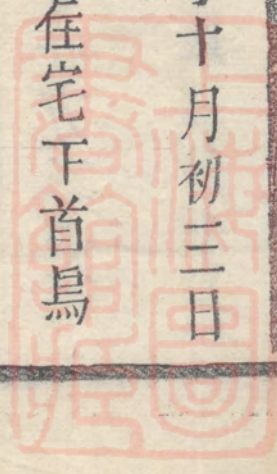 十月初三日
住宅下首鳥